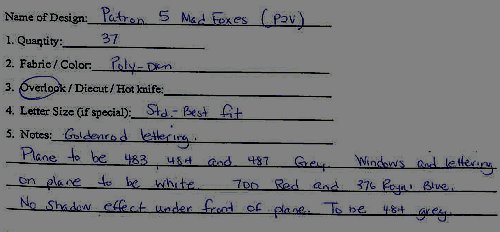 Name of Design: Patron 5 Mad Foxes (P2V)
1. Quantity: 37
2. Fabric / Color: Poly-Dkn
3. Overlook / Diecut / Hot knife:
4. Letter Size (if special): Std.- Best fit
5. Notes: Goldenrod lettering.
Plane to be 483, 484 and 487 Grey. Windows and lettering
on plane to be white. 700 Red and 376 Royal Blue.
No Shadow effect under front of plane. To be 484 grey.